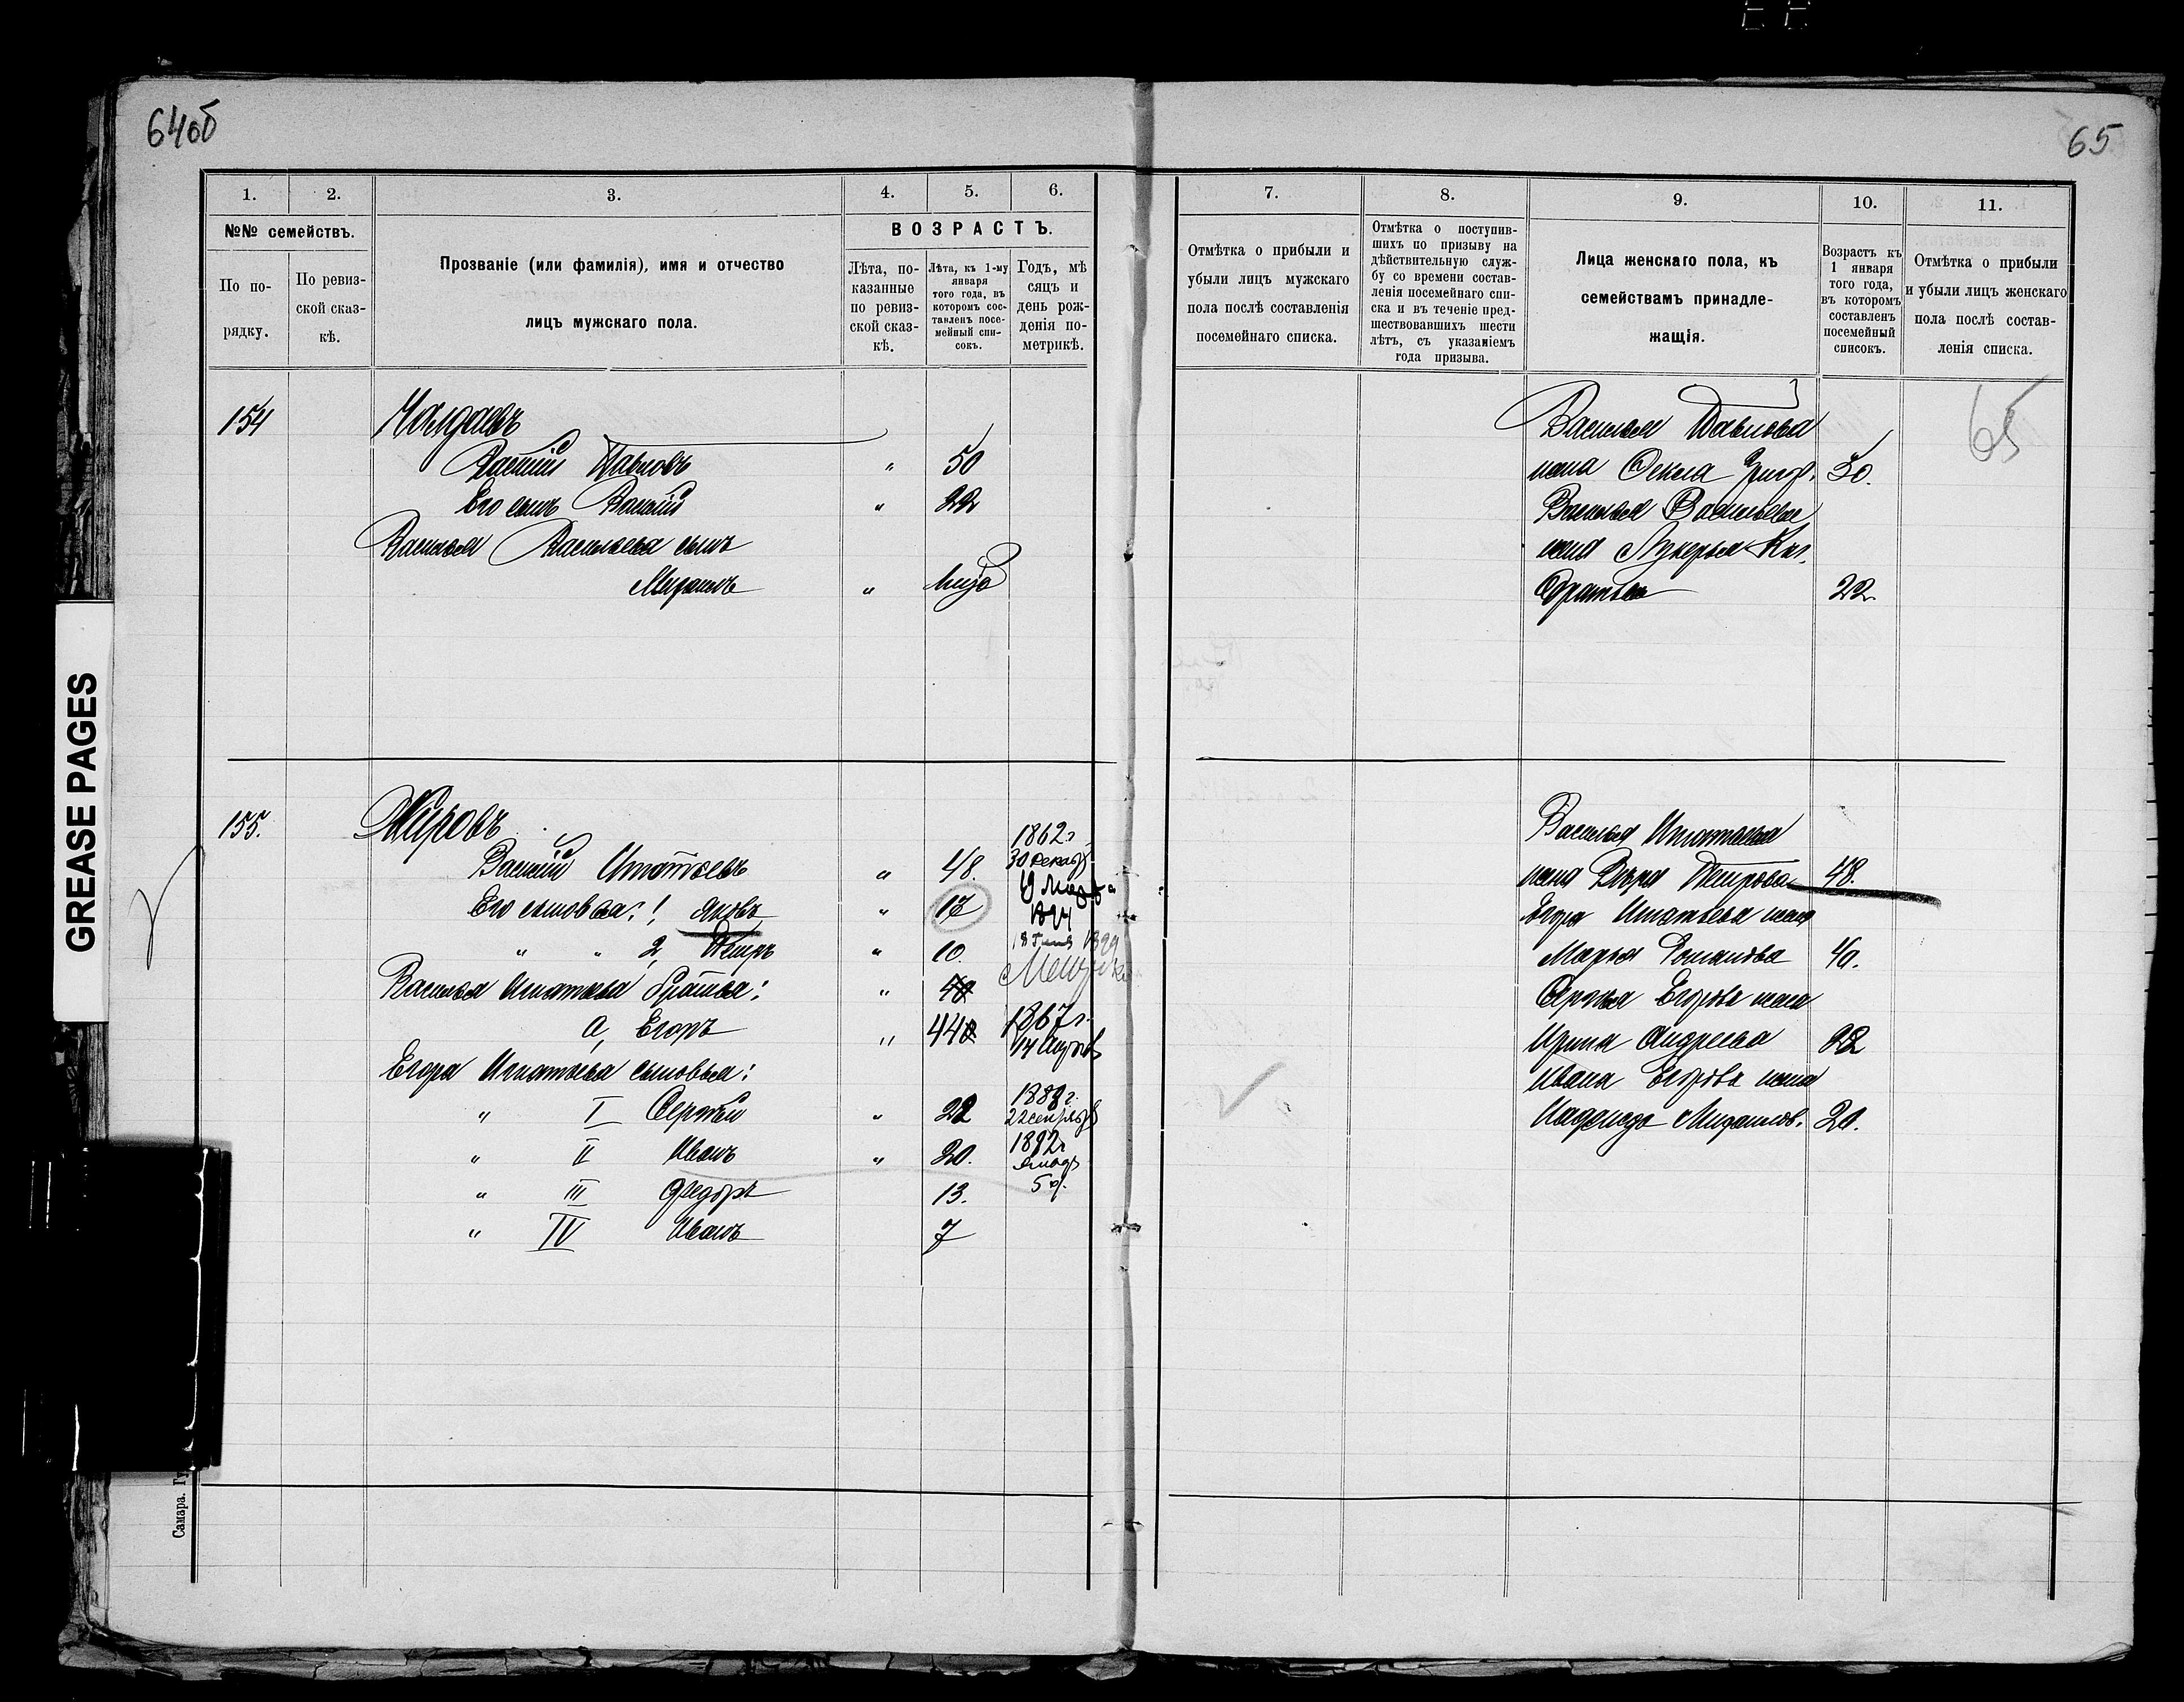 64об
65
1. 2. 3. 4. 5. 6.
№№ семействъ.
По по-
рядку.
По ревиз-
ской сказ-
кѣ.
Прозваніе (или фамилія), имя и отчество
лицъ мужскаго пола.
ВОЗРАСТЪ.
Лѣта, по-
казанные
по ревиз-
ской сказ-
кѣ.
Лѣта, къ 1-му
января
того года, въ
которомъ сос-
тавленъ посе-
мейный спи-
сокъ.
Годъ, мѣ
сяцъ и
день рож-
денія по-
метрикѣ.
154
Василій Павловъ " 50
Его сынъ Василій " 22
Василья Васильева сынъ
"
155. Жировъ
1862 г
Василій Игнатьевъ " 48. 30 декаб
Его сыновья: 1 Яковъ " 17
" " 2, Петръ " 10.
Василья Игнатьева братья: "
а, Егоръ " 44 1867 г.
Егора Игнатьева сыновья:
" I Сергѣй " 22 1888 г.
" II Иванъ " 20.
" III Федоръ 13.
" IV Иванъ 7
Самара. Гу
7. 8. 9. 10. 11.
Отмѣтка о прибыли и
убыли лицъ мужскаго
пола послѣ составленія
посемейнаго списка.
Отмѣтка о поступив-
шихъ по призыву на
дѣйствительную служ-
бу со времени состав-
ленія посемейнаго спи-
ска и въ теченіе пред-
шествовавшихъ шести
лѣтъ, съ указаніемъ
года призыва.
Лица женскаго пола, къ
семействамъ принадле-
жащія.
Возрастъ къ
1 января
того года,
въ которомъ
составленъ
посемейный
списокъ.
Отмѣтка о прибыли
и убыли лицъ женскаго
пола послѣ состав-
ленія списка.
65
Василья Павлова
жена Фекла Григ. 50.
Василья Васильева
жена Лукерья Кон.
дратьева 22
Василья Игнатьева
жена Вѣра Петрова 48.
Егора Игнатьева жена
Марья Романова 40.
Сергѣя Егорова жена
Ирина Андреева 22
Ивана Егорова жена
Надежда 20.
GREASE PAGES